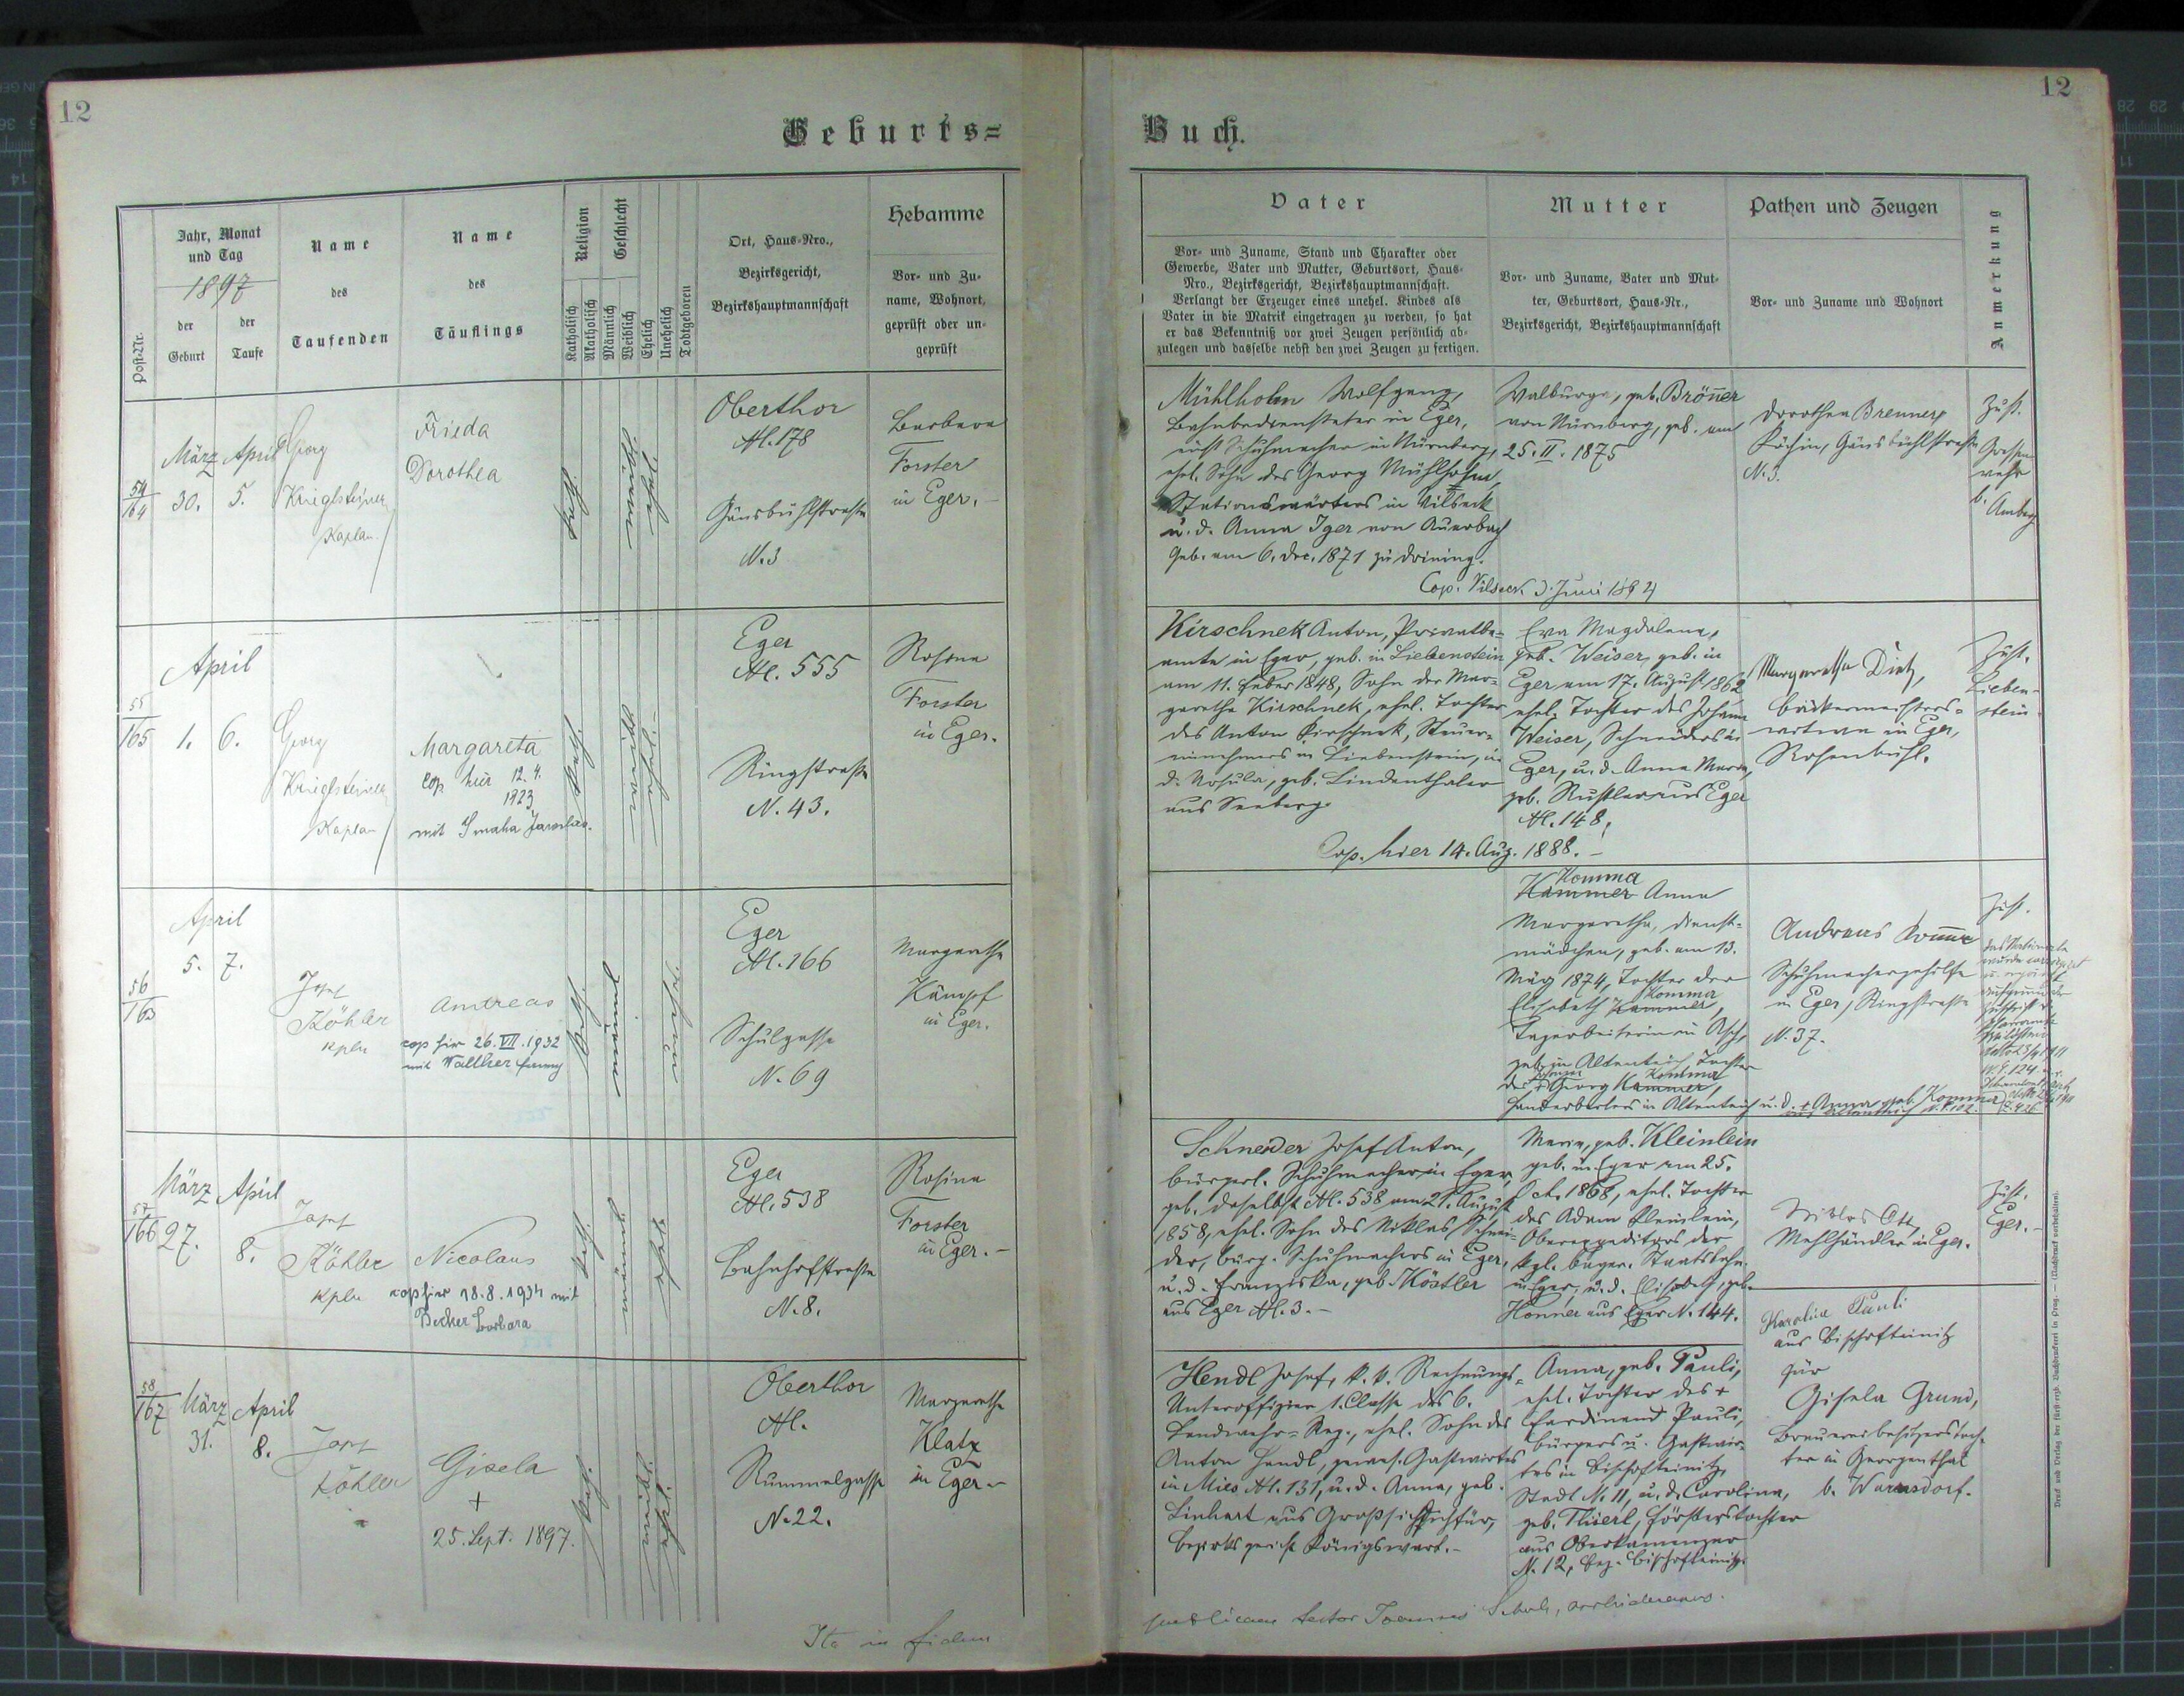 12
12
Geburts=
Buch.
Post-Nr.
Jahr, Monat
und Tag
1897
der
Geburt
der
Taufe
Name
des
Taufenden
Name
des
Täuflings
Religion
Geschlecht
Katholisch
Akatholisch
Männlich
Weiblich
Ehelich
Unehelich
Todtgeboren
Ort, Haus-Nro.,
Bezirksgericht,
Bezirkshauptmannschaft
Hebamme
Vor- und Zu-
name, Wohnort,
geprüft oder un-
geprüft
Vater
Vor- und Zuname, Stand und Charakter oder
Gewerbe, Vater und Mutter, Geburtsort, Haus-
Nro., Bezirksgericht, Bezirkshauptmannschaft.
Verlangt der Erzeuger eines unehel. Kindes als
Vater in die Matrik eingetragen zu werden, so hat
er das Bekenntniß vor zwei Zeugen persönlich ab-
zulegen und dasselbe nebst den zwei Zeugen zu fertigen.
Mutter
Vor- und Zuname, Vater und Mut-
ter, Geburtsort, Haus-Nr.,
Bezirksgericht, Bezirkshauptmannschaft
Pathen und Zeugen
Vor- und Zuname und Wohnort
Anmerkung
54
164
März
30.
April
5.
Georg
Krieglsteiner
Kaplan.
Frieda
Dorothea
Oberthor
Hl. 178
Gänsbühlstraße
N. 3
Barbara
Forster
in Eger. –
Mühlholm Wolfgang,
Bahnbediensteter in Eger,
Schuhmacher in Nürnberg,
ehel. Sohn des Georg Mühlholm,
Stationswärters in Vilseck
u. d. Anna Iger von Auerbach
geb. am 6. Dec. 1871 zu
Cop. Vilseck 3. Juni 1894
Walburga, geb. Brönner
von Nürnberg, geb. am
25. II. 1875
Dorothea Brenner
Köchin, Gänsbühlstraße
N. 3.
Zust.
b. Amberg
55
165
April
1.
6.
Georg
Krieglsteiner
Kaplan
Margareta
cop hier 12. 4.
1923
mit Smaha Jaroslav.
Eger
Hl. 555
Ringstraße
N. 43.
Rosina
Forster
in Eger.
Kirschnek Anton, Privatbe-
amte in Eger, geb. in Liebenstein
am 11. Feber 1848, Sohn der Mar-
garetha Kirschnek, ehel. Tochter
des Anton Kirschnek, Steuer-
einnehmers in Liebenstein, u.
d. Ursula, geb. Lindenthaler
aus Seeberg.
Cop. hier 14. Aug. 1888. –
Eva Magdalena,
geb. Weiser, geb. in
Eger am 17. August 1862
ehel. Tochter des Johann
Weiser, Schneiders in
Eger, u. d. Anna Maria,
geb. Rustler aus Eger
Hl. 148.
Margaretha Dietz,
Bäckermeisters-
witwe in Eger,
Rosenbühl.
Zust.
Lieben-
stein
56
165
April
5.
7.
Josef
Köhler
kpln
Andreas
cop hier 26. VII. 1932
mit Walther Fanny
Eger
Hl. 166
Schulgasse
N. 69
Margaretha
Kämpf
in Eger.
Komma
Kammer Anna
Margaretha, Dienst-
mädchen, geb. am 13.
März 1874, Tochter der
Komma
Elisabeth Kammer,
Tagarbeiterin in Asch,
geb. in Altenteich Tochter
Komma
des Georg Kammer,
in Altenteich u. d. + Anna geb. Komma
Andreas Komma
Schuhmachergehilfe
in Eger, Ringstraße
N. 37.
Zust.
57
166
März
27.
April
8.
Josef
Köhler
kpln
Nicolaus
cop hier 18. 8. 1934 mit
Becher Barbara
Eger
Hl. 538
Bahnhofstraße
N. 8.
Rosina
Forster
in Eger. –
Schneider Josef Anton,
bürgerl. Schuhmacher in Eger,
geb. daselbst Hl. 538 am 21. August
1858, ehel. Sohn des Niklas Schnei-
der, bürg. Schuhmachers in Eger,
u. d. Franziska, geb. Köstler
aus Eger Hl. 3. –
Maria, geb. Kleinlein
geb. in Eger am 25.
Oct. 1868, ehel. Tochter
des Adam Kleinlein,
Oberexpeditors der
kgl. bayer. Staatsbahn
in Eger, u. d. Elisabeth, geb.
Honner aus Eger N. 144.
Niklas Ott,
Mehlhändler in Eger.
Zust.
Eger. –
58
167
März
31.
April
8.
Josef
Köhler
Gisela
+
25. Sept. 1897.
Oberthor
Hl.
Rummelgasse
N. 22.
Margaretha
Klatz
in Eger –
Hendl Josef, k. k. Rechnungs-
Unteroffizier 1. Classe des 6.
Landwehr-Reg., ehel. Sohn des
Anton Hendl, gewes. Gastwirtes
in Mies Hl. 131, u. d. Anna, geb.
Linhart aus Großsichdichfür,
Bezirksgericht Königswart. –
Anna, geb. Pauli,
ehel. Tochter des +
Ferdinand Pauli,
Bürgers u. Gastwir-
tes in Bischofteinitz,
Stadt N. 11, u. d. Carolina,
geb. Thierl, Försterstochter
aus Oberkamenzen
N. 12, Bez. Bischofteinitz.
Karolina Pauli
aus Bischofteinitz
für
Gisela Grund,
Brauereibesitzerstoch-
ter in Georgenthal
b. Warnsdorf.
Ita in fidem
publicam testor Joannes